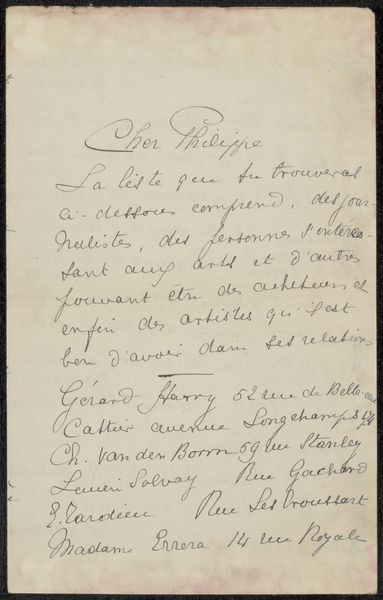 Cher Philippe
La liste que tu trouveras
ci-dessous comprend, des jour-
nalistes, des personnes s'intéres-
sant aux arts et d'autres
pouvant être des acheteurs et
enfin des artistes qu'il est
bon d'avoir dans ses relations
Gérard Harry 52 rue de Belle-vue
Cattier avenue Longchamps
Ch. Van den Borren 59 rue Stanley
Lucien Solvay Rue Gachard
E. Tardieu Rue Les Broussart
Madame Errera 14 rue Royale